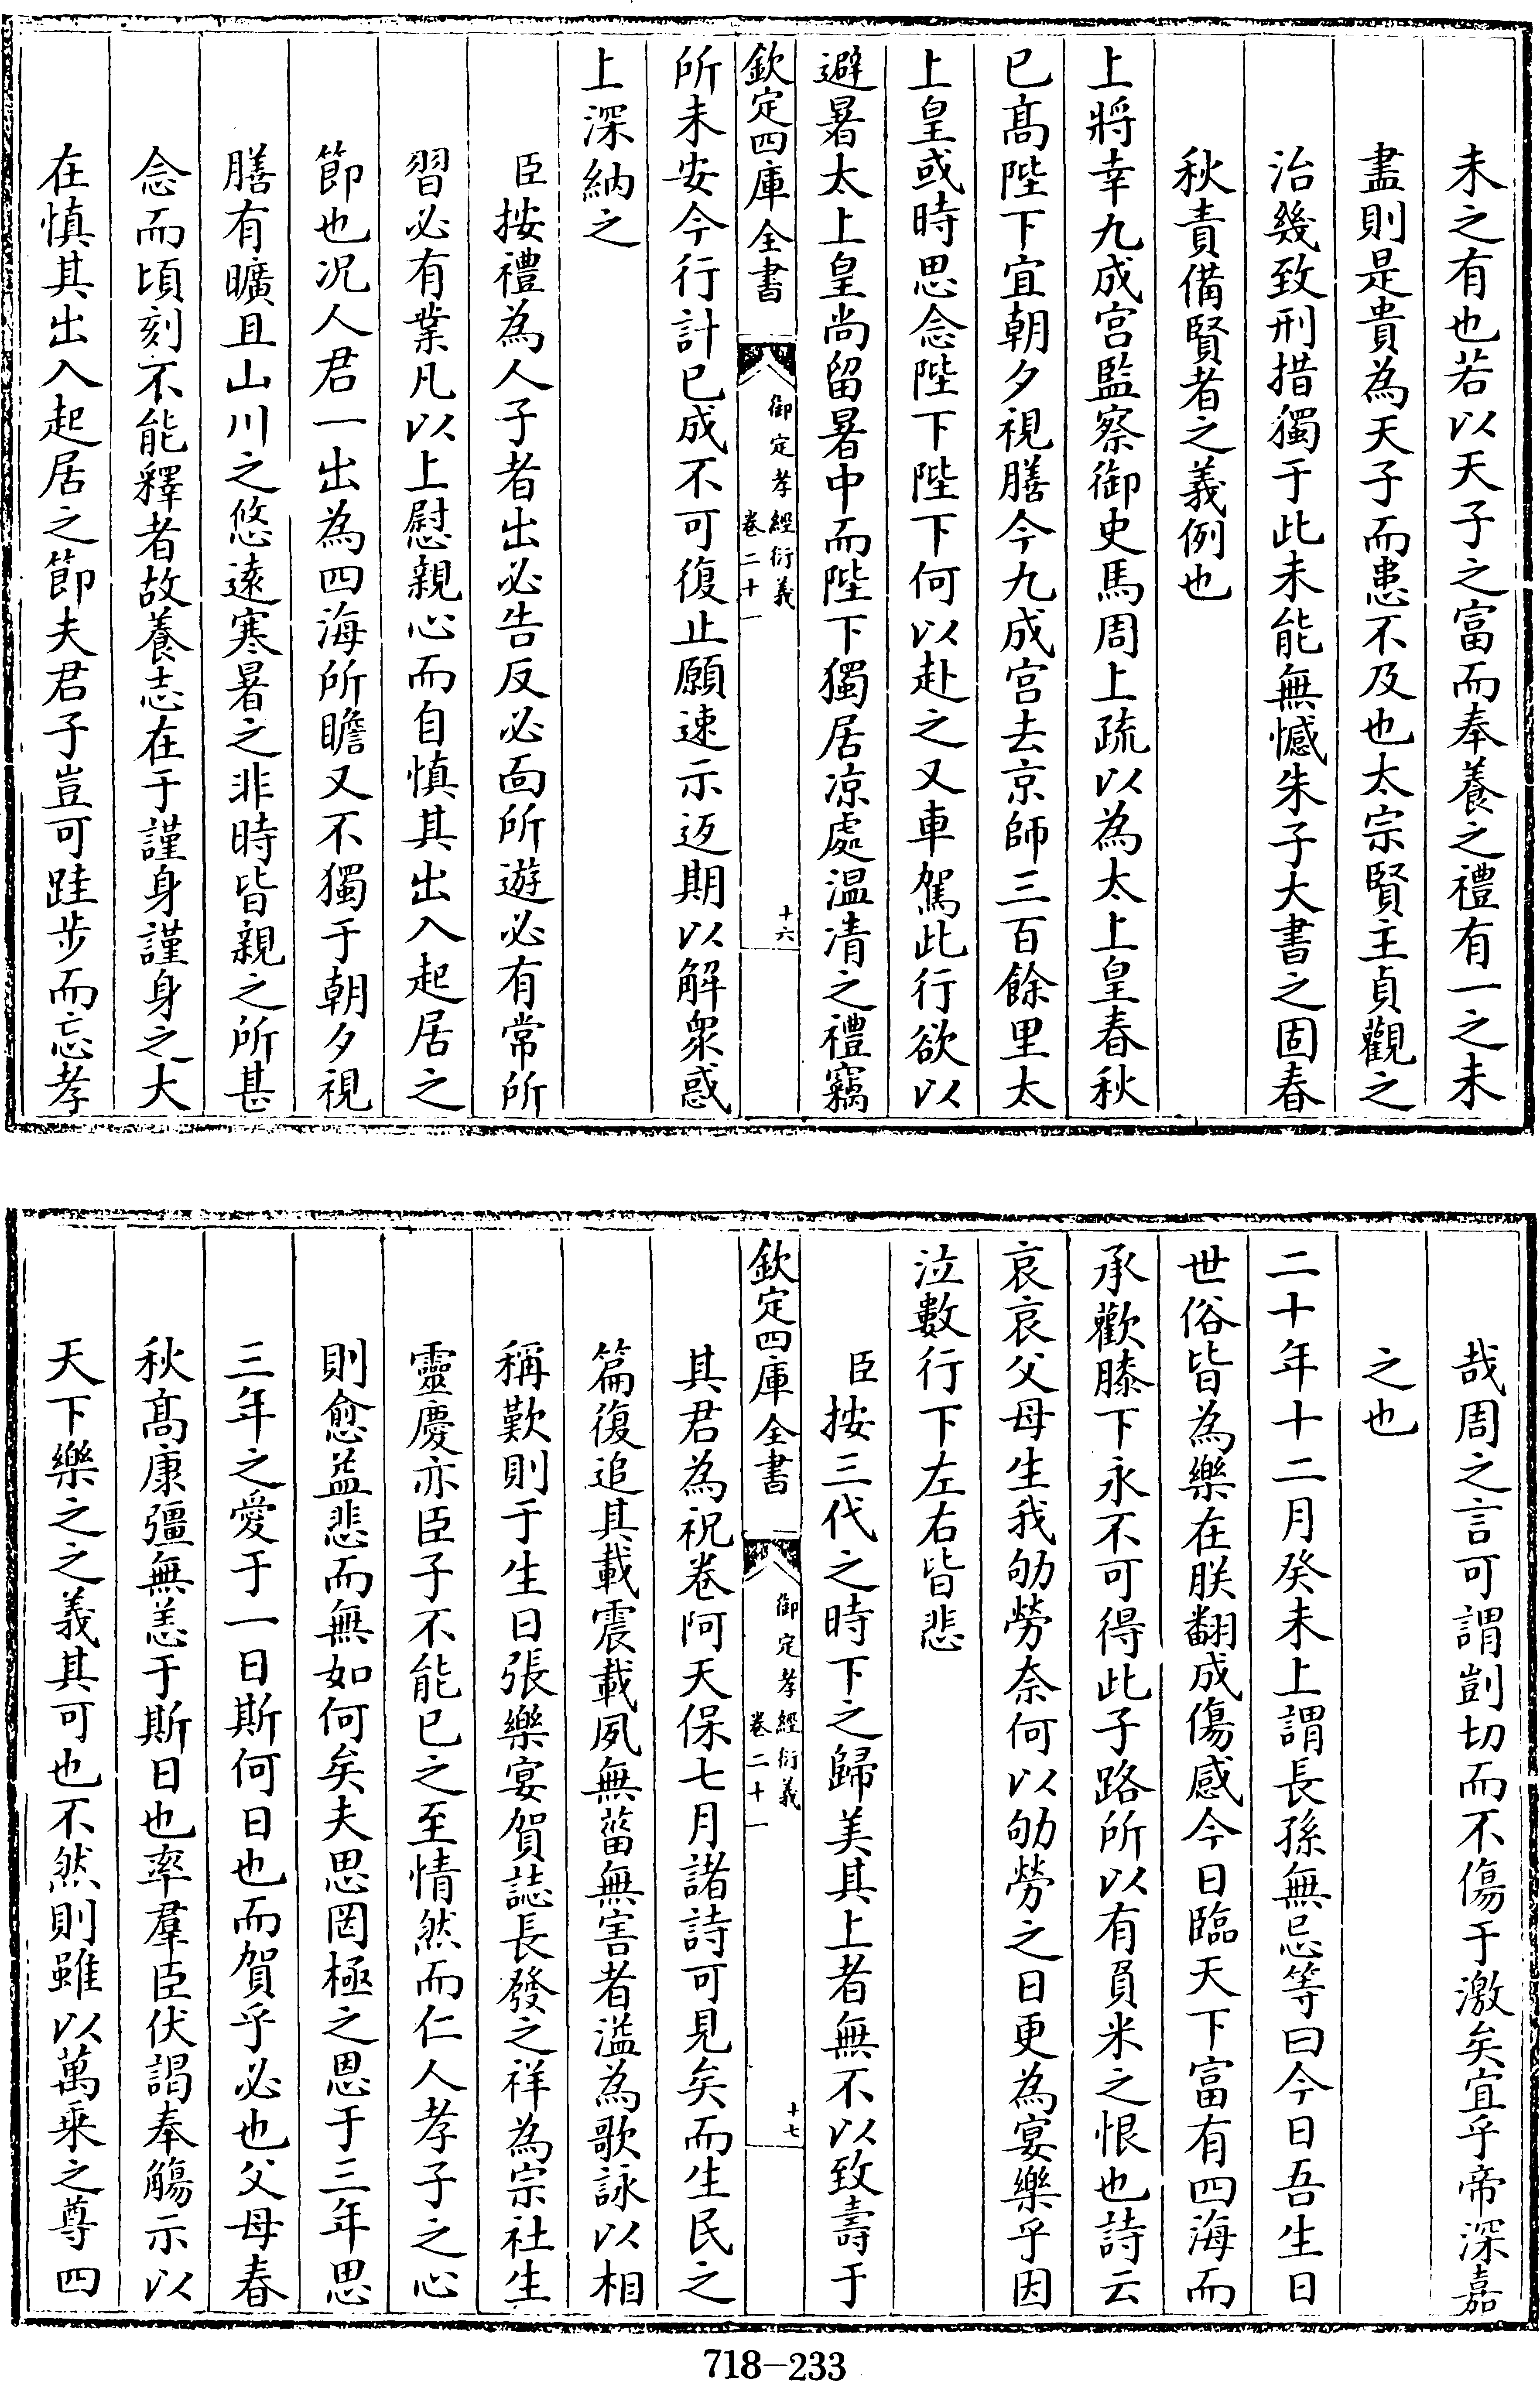 未之有也若以天子之富而奉養之禮有一之未
盡則是貴為天子而患不及也太宗賢主貞觀之
治幾致刑措獨于此未能無憾朱子大書之固春
秋責備賢者之義例也
上將幸九成宫監察御史馬周上疏以為太上皇春秋
已髙陛下宜朝夕視膳今九成宫去京師三百餘里太
上皇或時思念陛下陛下何以赴之又車駕此行欲以
避暑太上皇尚留暑中而陛下獨居凉處温凊之禮竊
欽定四庫全書
御定孝經衍義
卷二十一
十六
所未安今行計已成不可復止願速示返期以解衆惑
上深納之
臣按禮為人子者出必告反必面所遊必有常所
習必有業凡以上慰親心而自慎其出入起居之
節也况人君一出為四海所瞻又不獨于朝夕視
膳有曠且山川之悠遠寒暑之非時皆親之所甚
念而頃刻不能釋者故養志在于謹身謹身之大
在慎其出入起居之節夫君子豈可跬步而忘孝
哉周之言可謂剴切而不傷于激矣宜乎帝深嘉
之也
二十年十二月癸未上謂長孫無忌等曰今日吾生日
世俗皆為樂在朕翻成傷感今日臨天下富有四海而
承歡膝下永不可得此子路所以有負米之恨也詩云
哀哀父母生我劬勞奈何以劬勞之日更為宴樂乎因
泣數行下左右皆悲
臣按三代之時下之歸美其上者無不以致壽于
欽定四庫全書
御定孝經衍義
卷二十一
十七
其君為祝卷阿天保七月諸詩可見矣而生民之
篇復追其載震載夙無菑無害者溢為歌詠以相
稱歎則于生日張樂宴賀誌長發之祥為宗社生
靈慶亦臣子不能已之至情然而仁人孝子之心
則愈益悲而無如何矣夫思罔極之恩于三年思
三年之愛于一日斯何日也而賀乎必也父母春
秋髙康彊無恙于斯日也率羣臣伏謁奉觴示以
天下樂之之義其可也不然則雖以萬乗之尊四
718-233